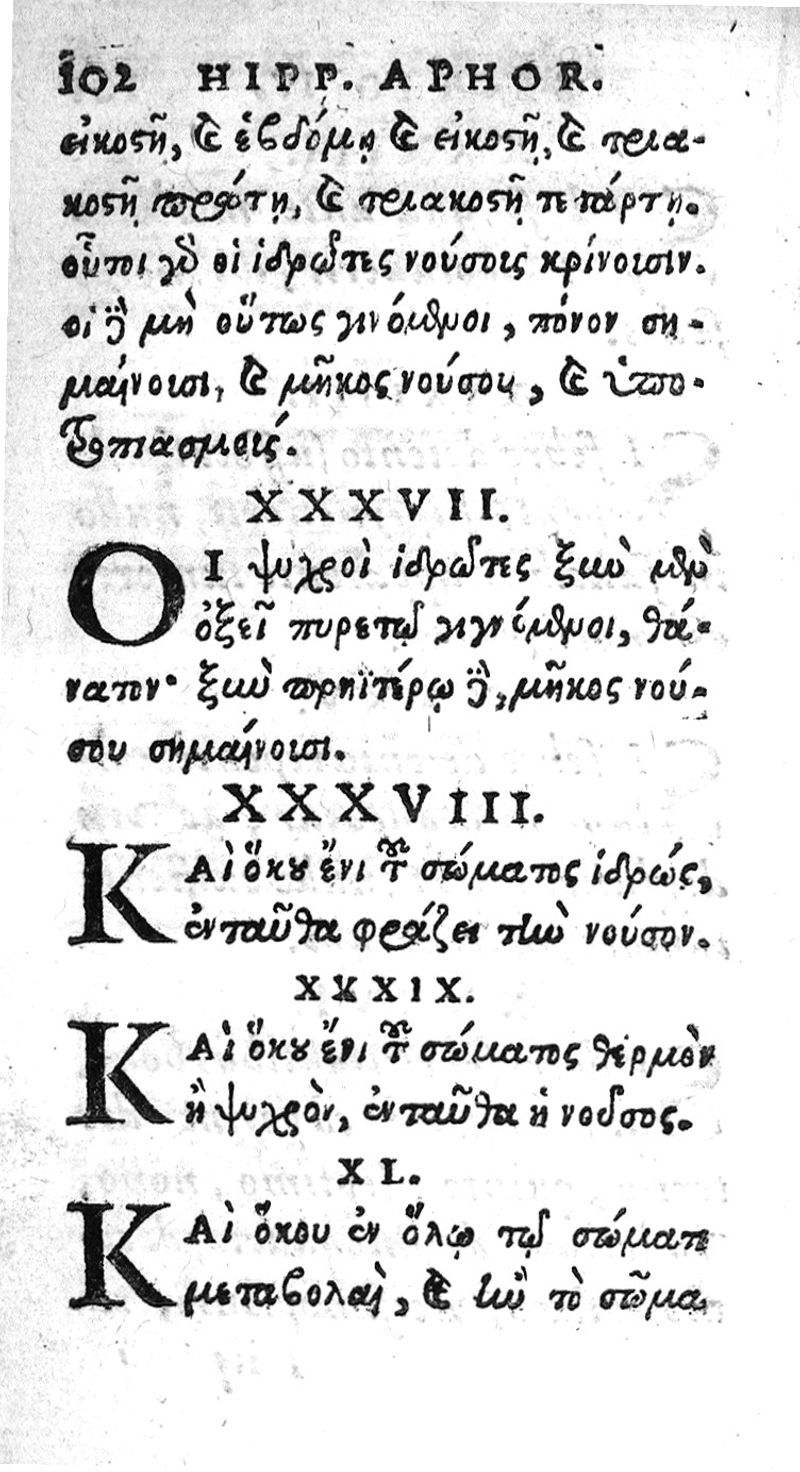 102 HIPP. APHOR.
εἰκοστῇ, καὶ ἑβδόμῃ καὶ εἰκοστῇ, καὶ τρια-
κοστῇ πρώτῃ, καὶ τριακοστῇ τετάρτῃ.
οὗτοι γὰρ οἱ ἱδρῶτες νούσοις κρίνουσιν.
οἱ δὲ μὴ οὕτως γινόμενοι, πόνον ση-
μαίνουσι, καὶ μῆκος νούσου, καὶ ὑπο-
τροπιασμούς.
XXXVII.
ΟΙ ψυχροὶ ἱδρῶτες ξὺν μὲν
ὀξεῖ πυρετῷ γιγνόμενοι, θά-
νατον· ξὺν πρηϊτέρῳ δὲ, μῆκος νού-
σου σημαίνουσι.
XXXVIII.
ΚΑὶ ὅκου ἔνι τοῦ σώματος ἱδρώς,
ἐνταῦθα φράζει τὴν νοῦσον.
XXXIX.
ΚΑὶ ὅκου ἔνι τοῦ σώματος θερμὸν
ἢ ψυχρὸν, ἐνταῦθα ἡ νοῦσος.
XL.
ΚΑὶ ὅκου ἐν ὅλῳ τῷ σώματι
μεταβολαὶ, καὶ ἢν τὸ σῶμα